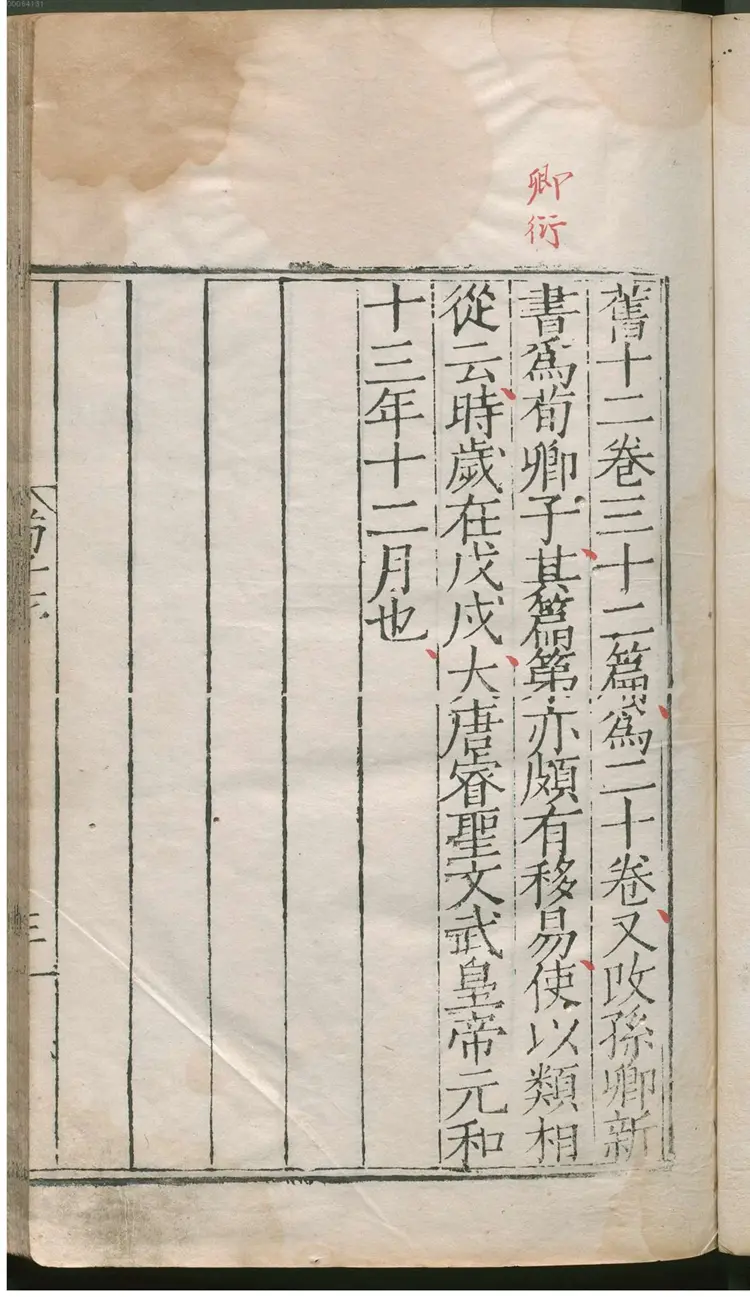 00064151
卿
衍
舊十二卷三十二篇爲二十卷又改孫卿新
書爲荀卿子其篇第亦頗有移易使以類相
從云時歲在戊戌大唐睿聖文武皇帝元和
十三年十二月也